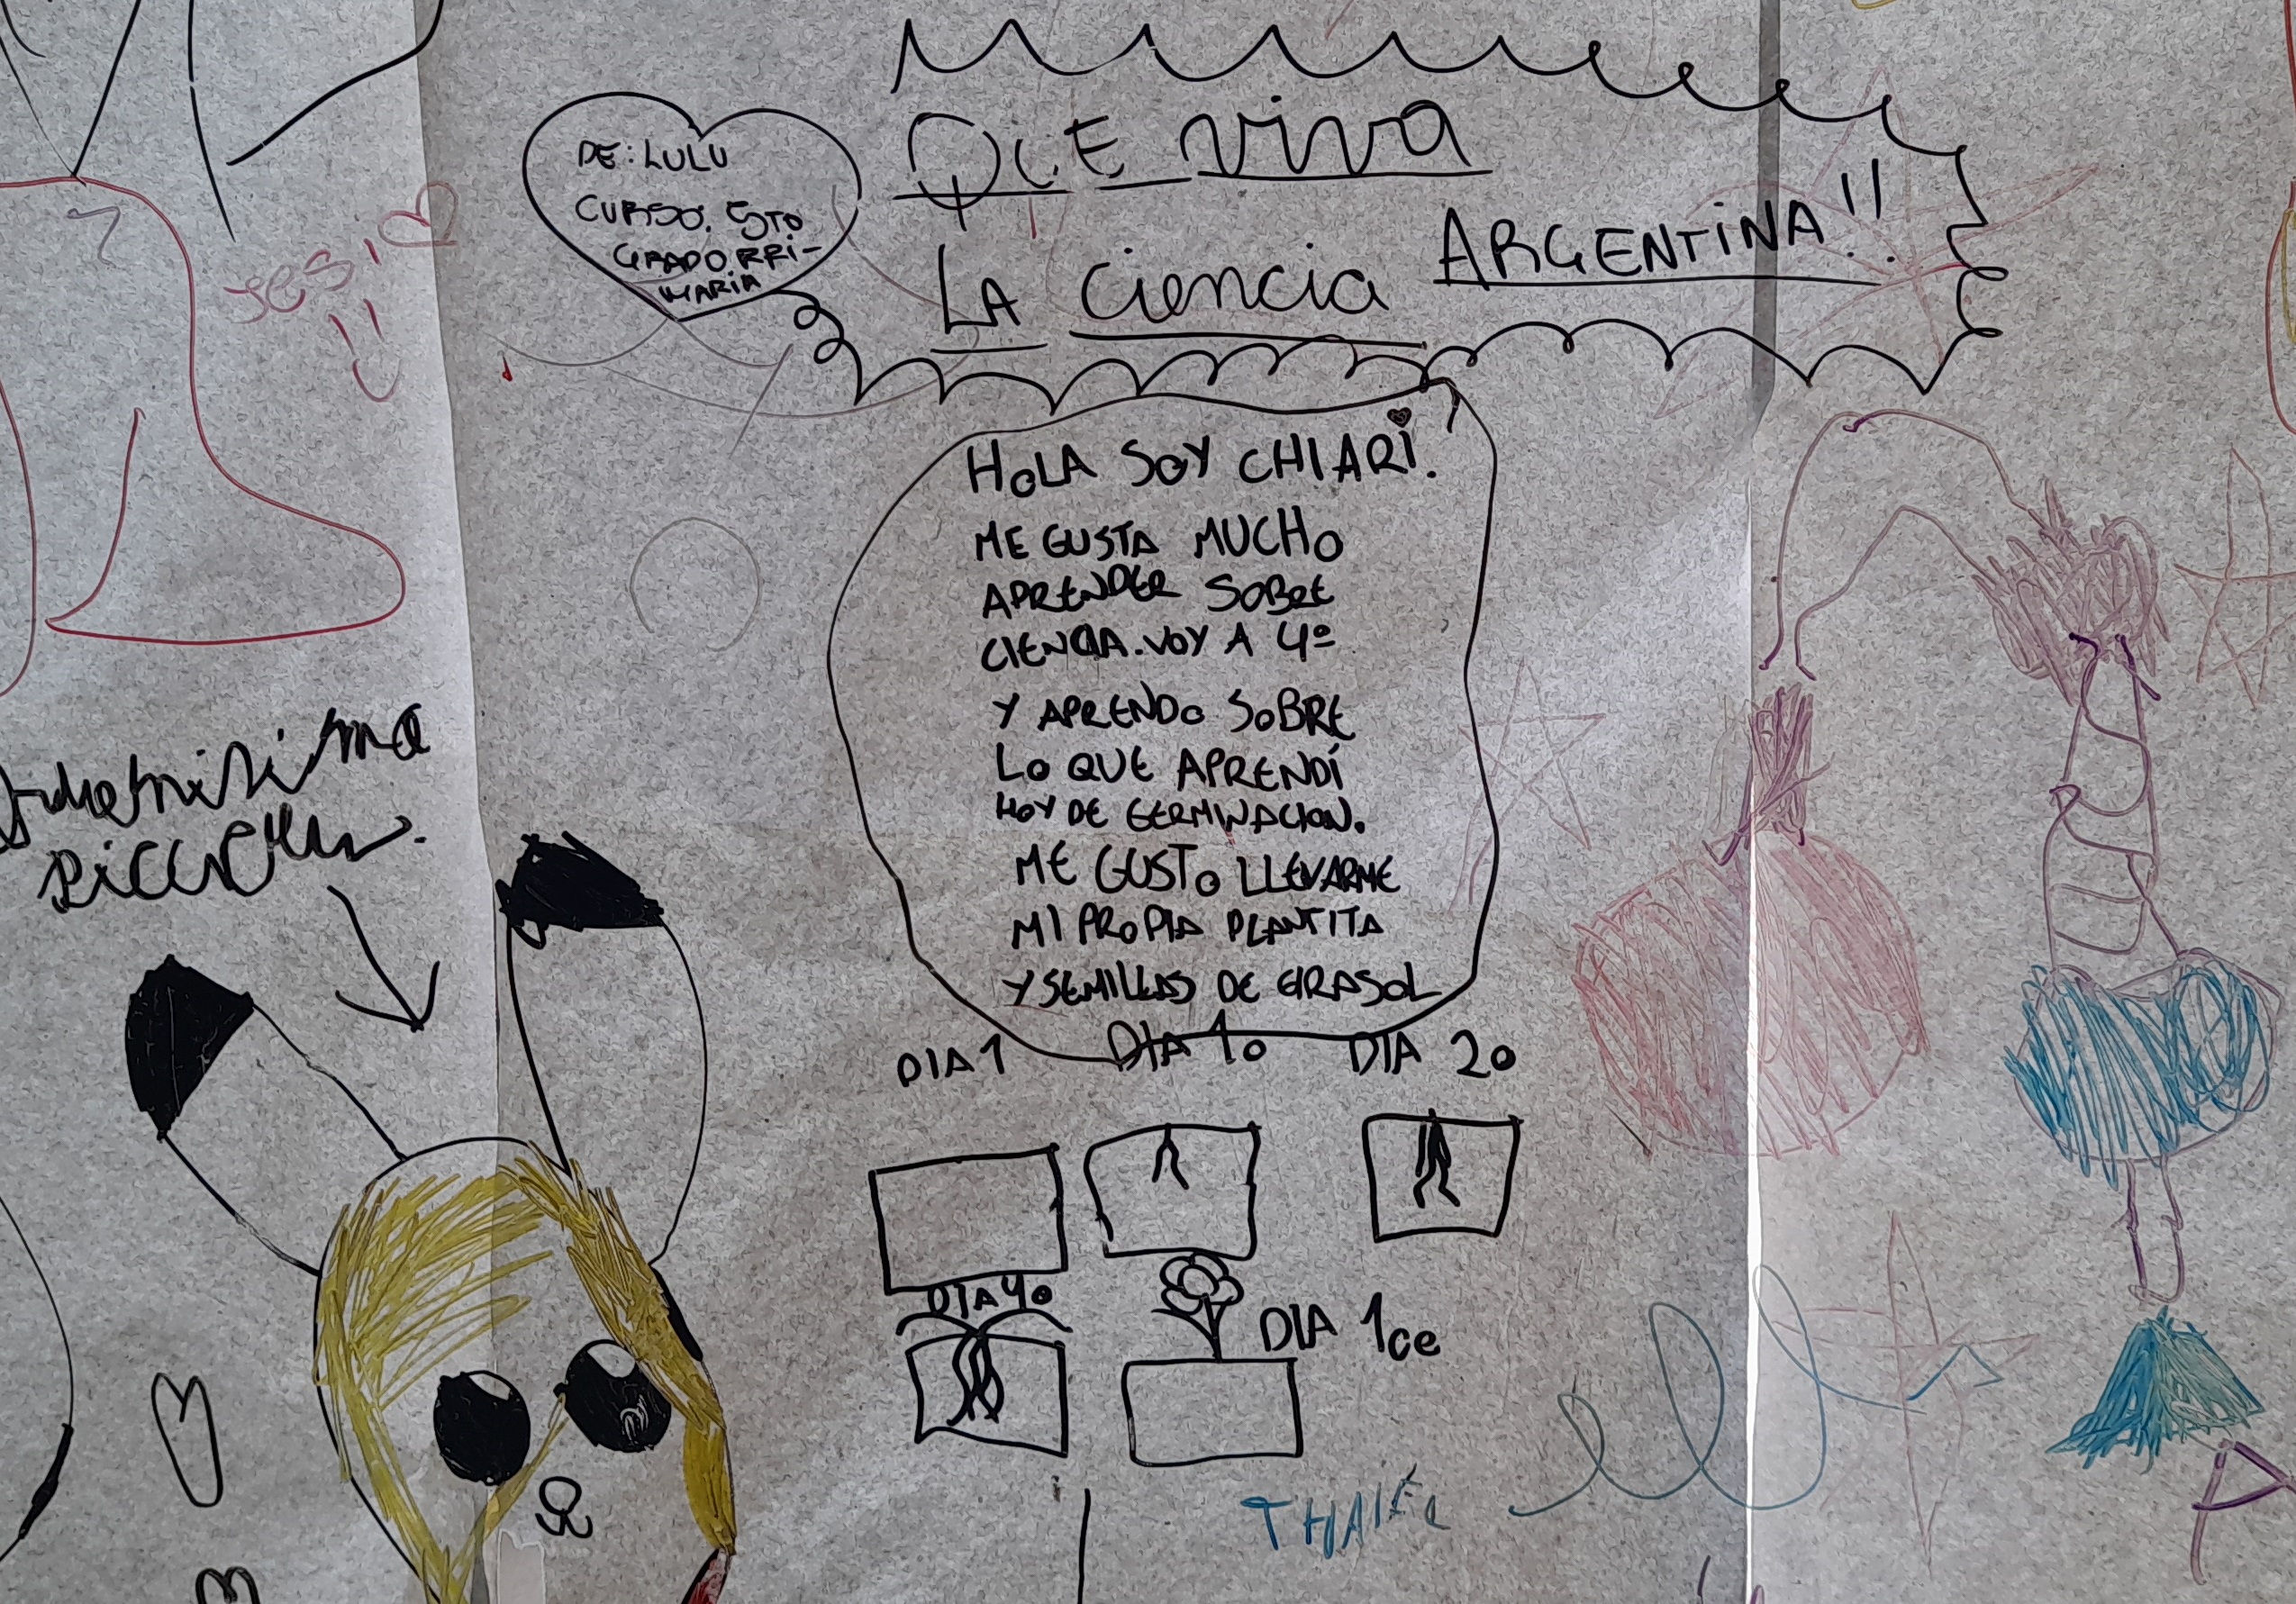 QUE viva
LA ciencia ARGENTINA!!
DE: LULU
CURSO: 5TO
GRADO PRI-
MARIA
HOLA SOY CHIARI.
ME GUSTA MUCHO
APRENDER SOBRE
CIENCIA. VOY A 4º
Y APRENDO SOBRE
LO QUE APRENDÍ
HOY DE GERMINACION.
ME GUSTO LLEVARME
MI PROPIA PLANTITA
Y SEMILLAS DE GIRASOL
DIA 1 DIA 10 DIA 20
DIA 40
DIA 100